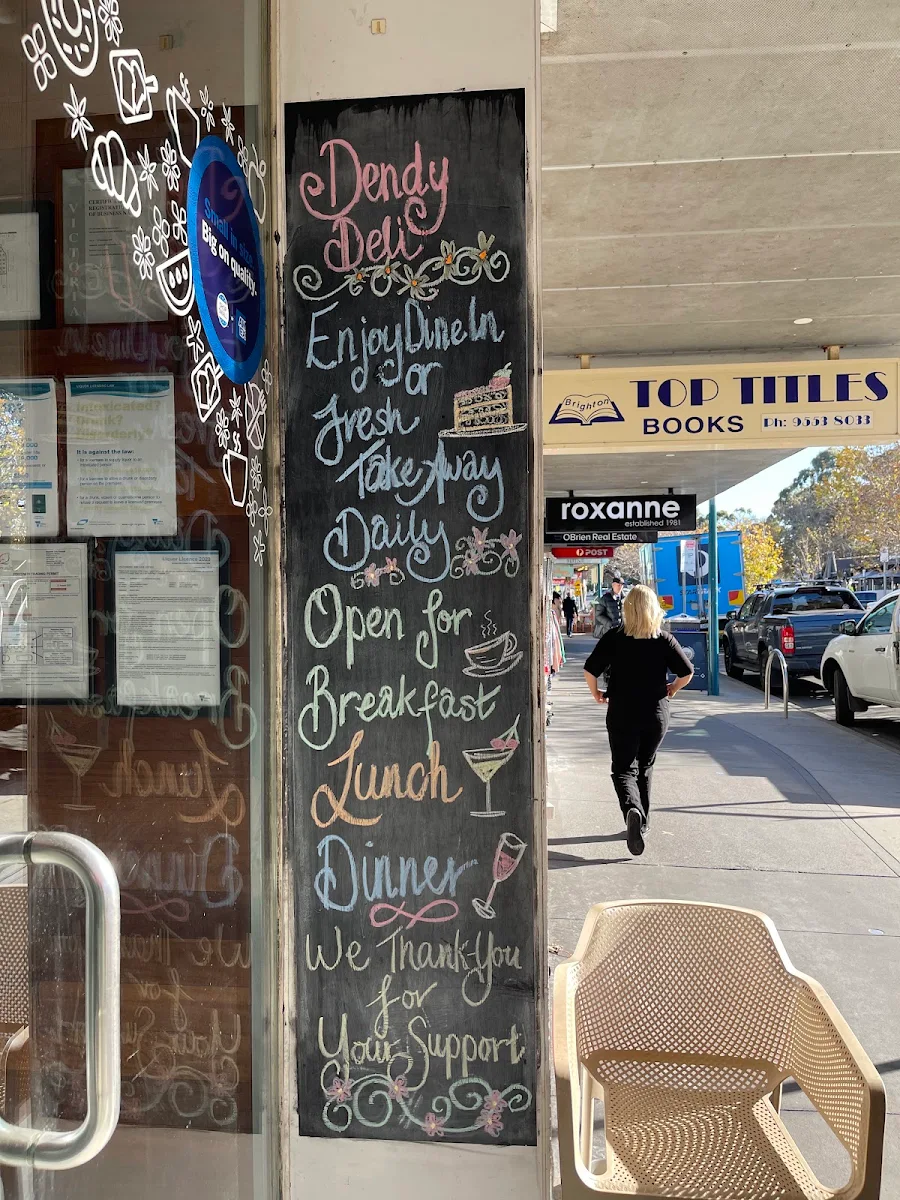 Dendy
Deli
Enjoy Dine In
or
Fresh
Take Away
Daily
Open for
Breakfast
Lunch
Dinner
We Thank You
for
Your Support
Small in size.
Big on quality.
VICTORIA
Intoxicated?
Drunk?
Disorderly?
It is against the law:
Brighton
TOP TITLES
BOOKS
Ph: 9553 8033
roxanne
established 1981
OBrien Real Estate
POST